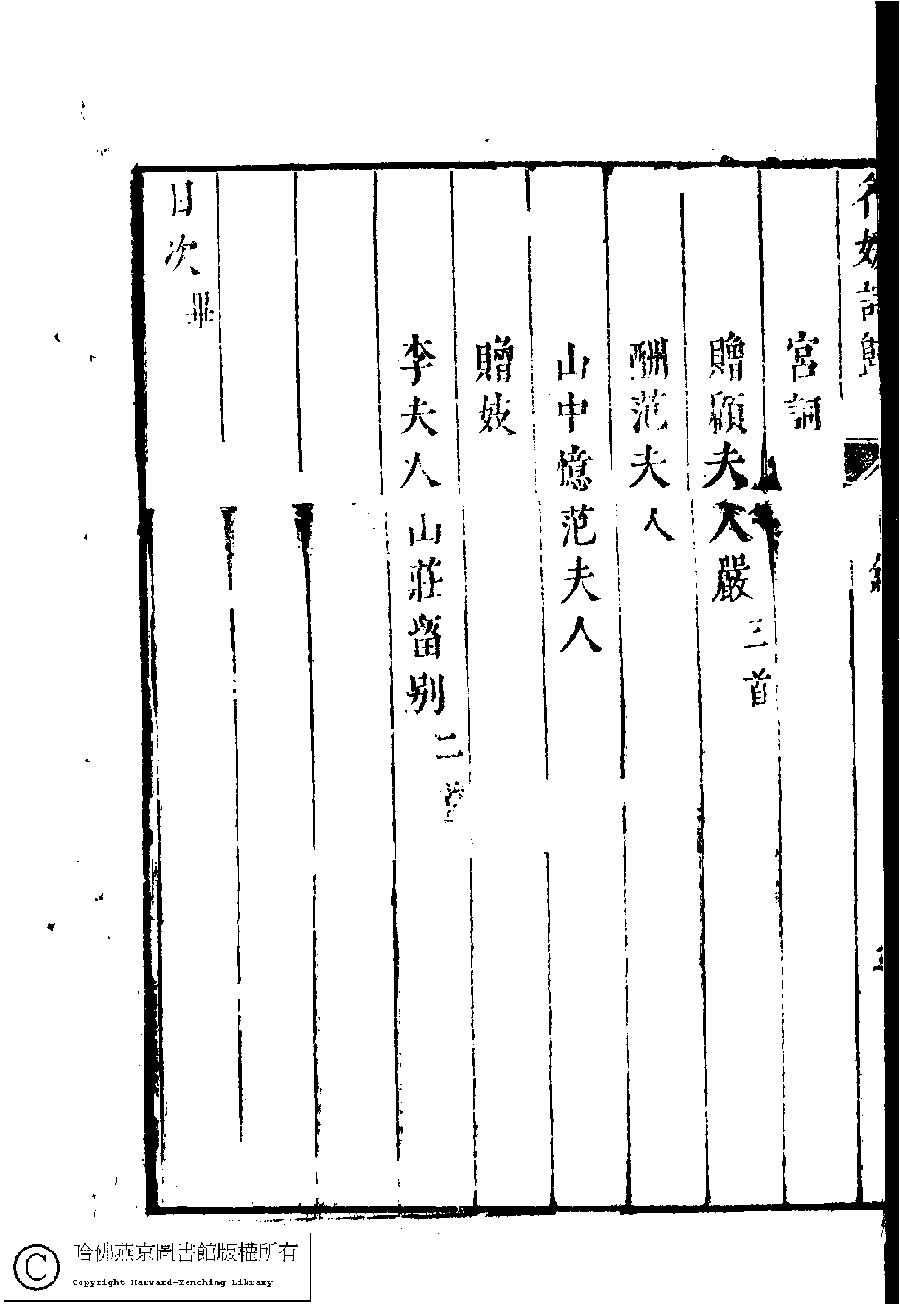 宮詞
贈顧夫人嚴三首
酬范夫人
山中憶范夫人
贈妓
李夫人山莊留別二首
目次畢
哈佛燕京圖書館版權所有
Copyright Harvard-Yenching Library